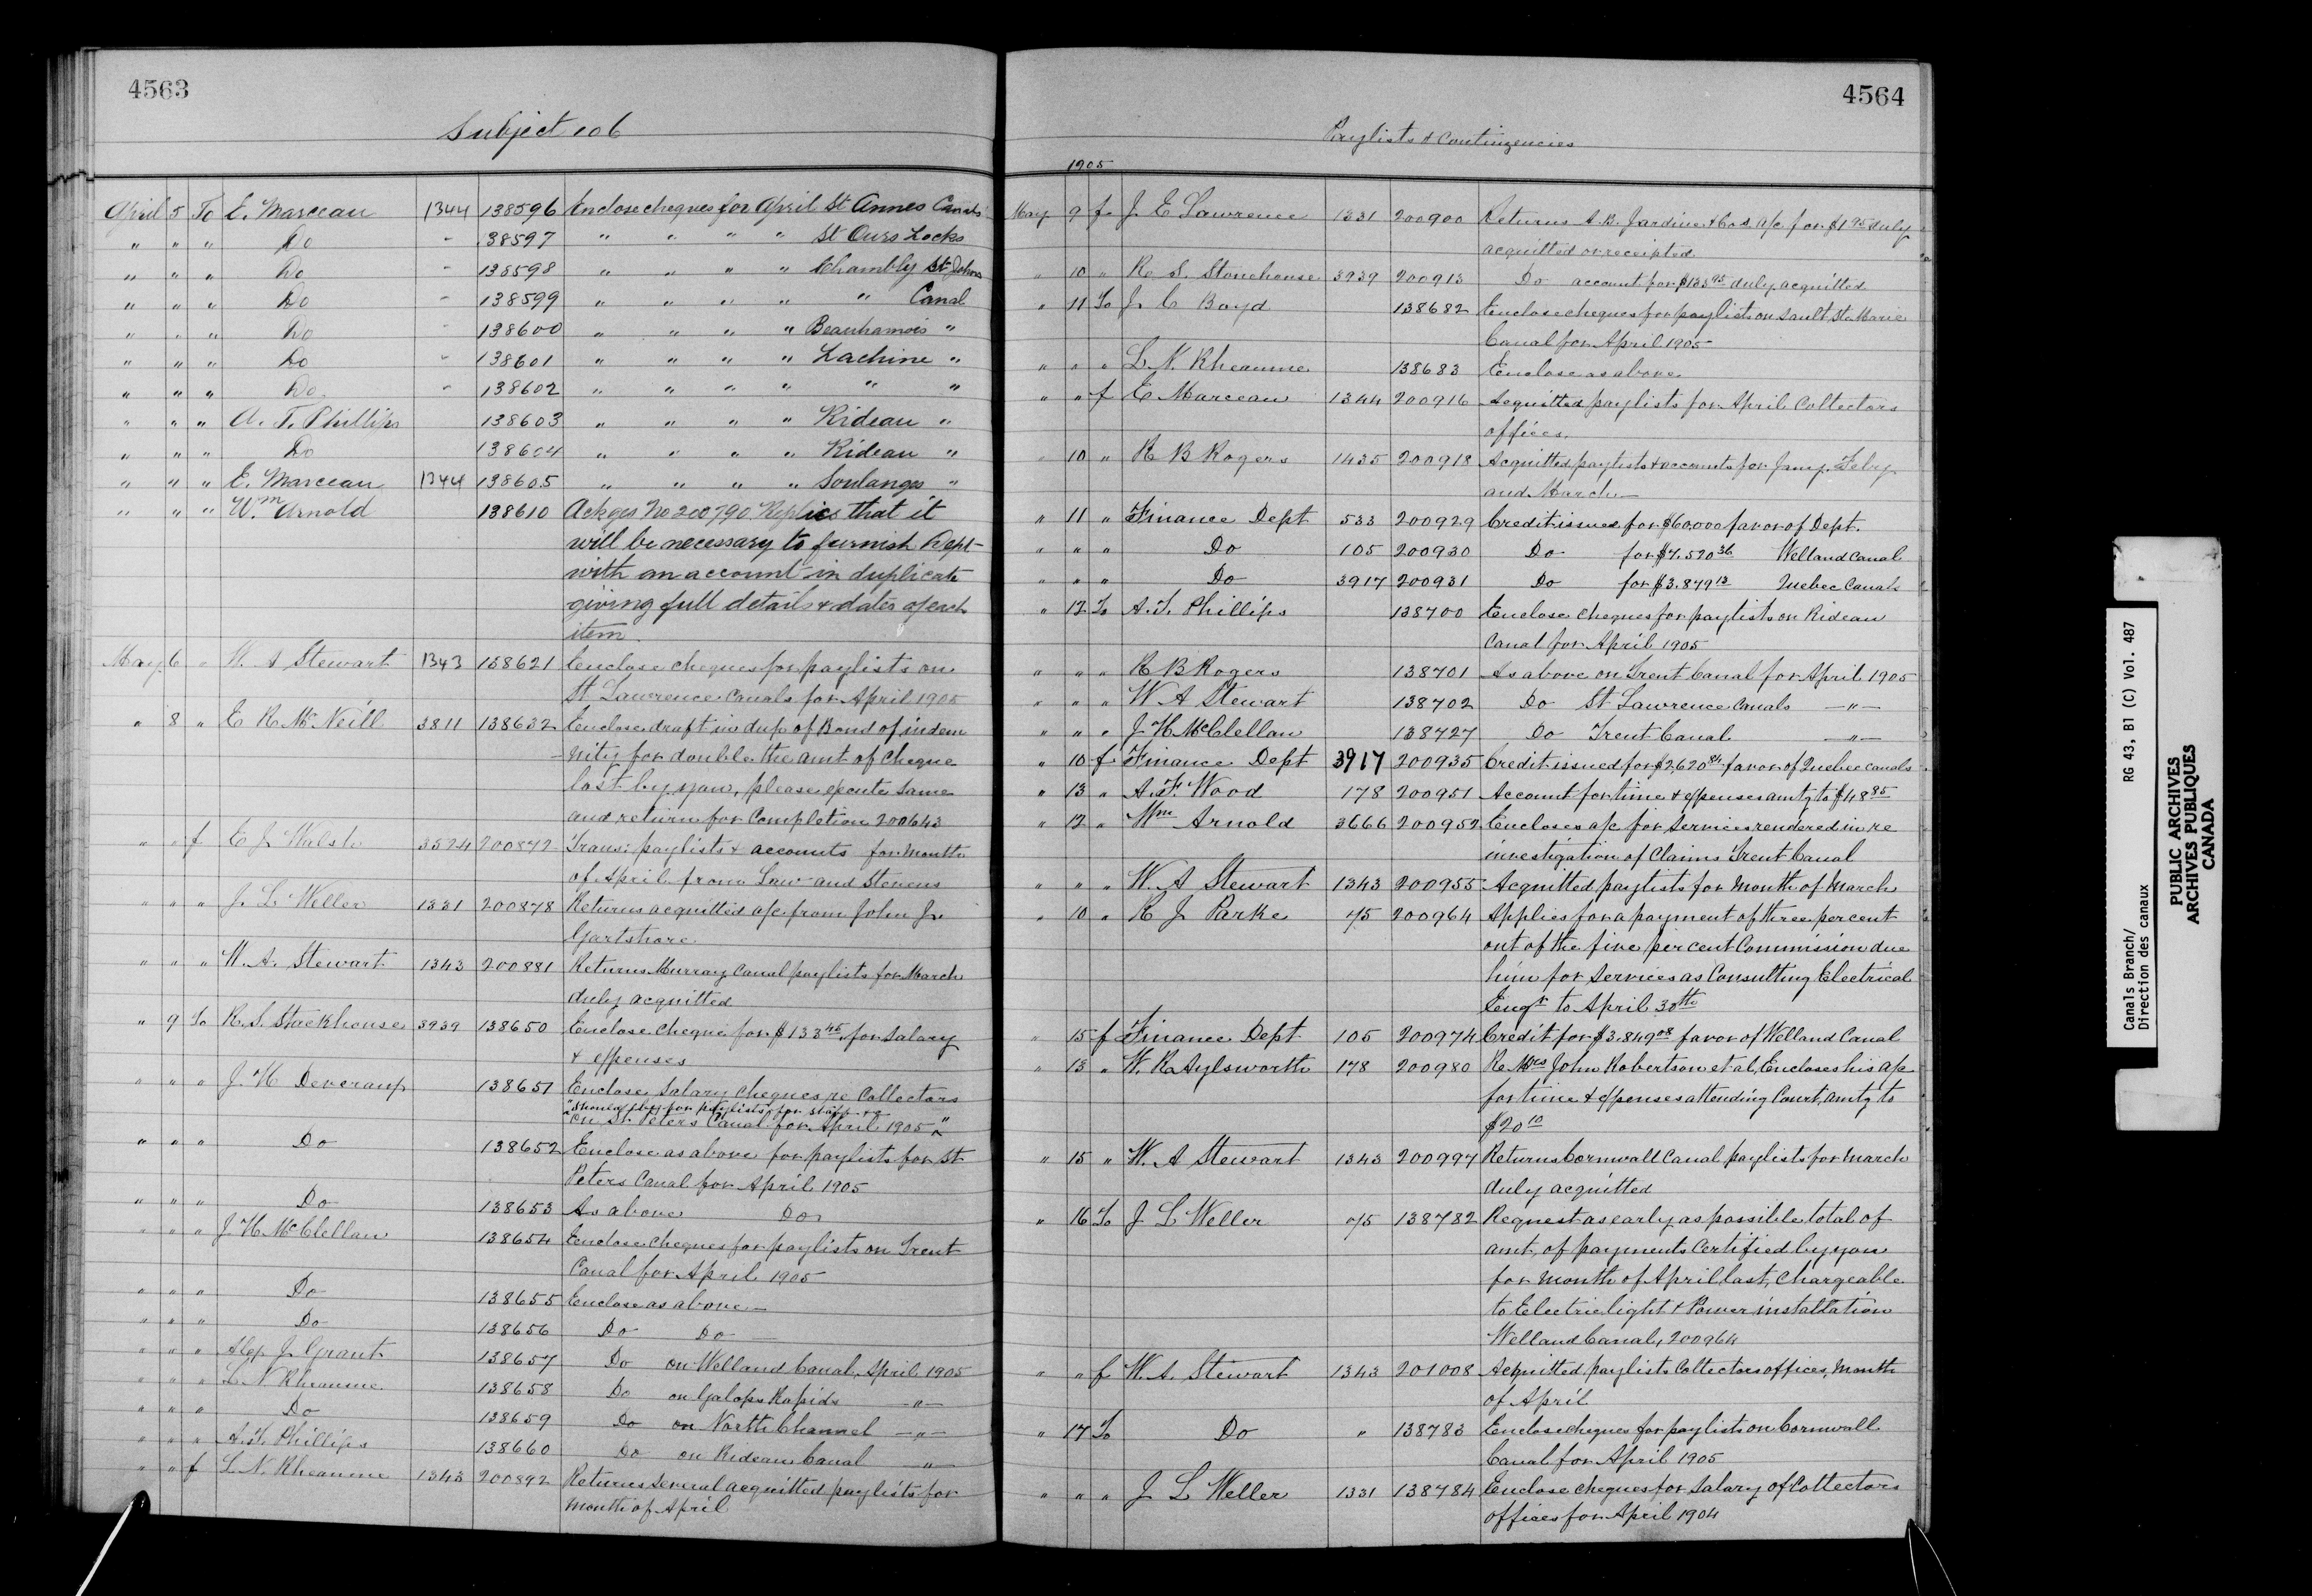 4563
Subject 106
April 5 To E. Marceau 1344 138596 Enclose cheques for April St Annes Canals
" " " Do " 138597 " " " " St Ours Locks
" " " Do " 138598 " " " " Chambly St Johns
" " " Do " 138599 " " " " " Canal
" " " Do " 138600 " " " " Beauharnois "
" " " Do " 138601 " " " " Lachine "
" " " Do " 138602 " " " " " "
" " " A. T. Phillips 138603 " " " " Rideau "
" " " Do 138604 " " " " Rideau "
" " " E. Marceau 1344 138605 " " " " Soulanges "
" " " Wm Arnold 138610 Ackges No 200790 Replies that it
will be necessary to furnish Dept
with an account in duplicate
giving full details & dates of each
item.
May 6 " W. A Stewart 1343 138621 Enclose cheques for paylists on
St Lawrence Canals for April 1905
" 8 " E R McNeill 3811 138632 Enclose draft in dup of Bond of indem
nity for double the amt of cheque
lost by you, please execute same
and return for Completion 200643
" " f E J Walsh 3524 200872 Trans: paylists & accounts for month
of April from Law and Stevens
" " " J. L Weller 1331 200878 Returns acquitted a/c from John J.
Gartshore
" " " W. A. Stewart 1343 200881 Returns Murray Canal paylists for March
duly acquitted
" 9 To R. S. Stackhouse 3939 138650 Enclose cheque for $133 45 for salary
& expenses
" " " J. H Devereaux 138651 Enclose Salary cheques re Collectors
" should be for paylists for staff
on St. Peters Canal for April 1905 "
" " " Do 138652 Enclose as above for paylists for St
Peters Canal for April 1905
" " " Do 138653 As above Do
" " " J. H. McClellan 138654 Enclose cheques for paylists on Trent
Canal for April 1905
" " " Do 138655 Enclose as above
" " " Do 138656 Do Do
" " " Alex J. Grant 138657 Do on Welland Canal, April 1905
" " " L. N Rheaume 138658 Do on Galops Rapids "
" " " Do 138659 Do on North Channel "
" " " A. T. Phillips 138660 Do on Rideau Canal "
" " f L. N. Rheaume 1343 200892 Returns several acquitted paylists for
month of April
4564
Paylists & Contingencies
1905
May 9 f J E Lawrence 1331 200900 Returns A. B. Jardine & Cos. a/c for $1 95 duly
acquitted or receipted
" 10 " R S. Stonehouse 3939 200913 Do account for $133 95 duly acquitted
" 11 To J. C Boyd 138682 Enclose cheques for paylists on Sault Ste Marie
Canal for April 1905
" " " L. N. Rheaume 138683 Enclose as above
" " f E Marceau 1344 200916 Acquitted paylists for April Collectors
offices.
" 10 " R B Rogers 1435 200918 Acquitted paylists & accounts for Jany, Feby
and March
" 11 " Finance Dept 533 200929 Credit issued for $60,000 favor of Dept.
" " " Do 105 200930 Do for $7.520 36 Welland Canal
" " " Do 3917 200931 Do for $3.879 13 Quebec Canals
" 12 To A. T. Phillips 138700 Enclose cheques for paylists on Rideau
Canal for April 1905
" " " R B Rogers 138701 As above on Trent Canal for April 1905
" " " W A Stewart 138702 Do St Lawrence Canals "
" " " J H McClellan 138727 Do Trent Canal "
" 10 f Finance Dept 3917 200935 Credit issued for $2,620 84 favor of Quebec canals
" 13 " A. F. Wood 178 200951 Account for time & expenses amtg to $48 85
" 12 " Wm Arnold 3666 200952 Encloses a/c for services rendered in re
investigation of Claims Trent Canal
" " " W. A Stewart 1343 200955 Acquitted paylists for month of March
" 10 " R J Parke 75 200964 Applies for a payment of three per cent
out of the five per cent Commission due
him for services as Consulting Electrical
Engr to April 30th
" 15 f Finance Dept 105 200974 Credit for $3.849 08 favor of Welland Canal
" 13 " W. R Aylsworth 178 200980 Re Mrs John Robertson et al, Encloses his a/c
for time & expenses attending Court, amtg to
$20 10
" 15 " W. A Stewart 1343 200997 Returns Cornwall Canal paylists for March
duly acquitted
" 16 To J L Weller 75 138782 Request as early as possible total of
amt. of payments Certified by you
for month of April last, chargeable
to Electric light & Power installation
Welland Canal, 200964
" " f W. A. Stewart 1343 201008 Acquitted paylists Collectors offices, Month
of April
" 17 To Do " 138783 Enclose cheques for paylists on Cornwall
Canal for April 1905
" " " J L Weller 1331 138784 Enclose cheques for Salary of Collectors
offices for April 1904
Canals Branch/ RG 43, B1 (C) Vol. 487
Direction des canaux
PUBLIC ARCHIVES
ARCHIVES PUBLIQUES
CANADA